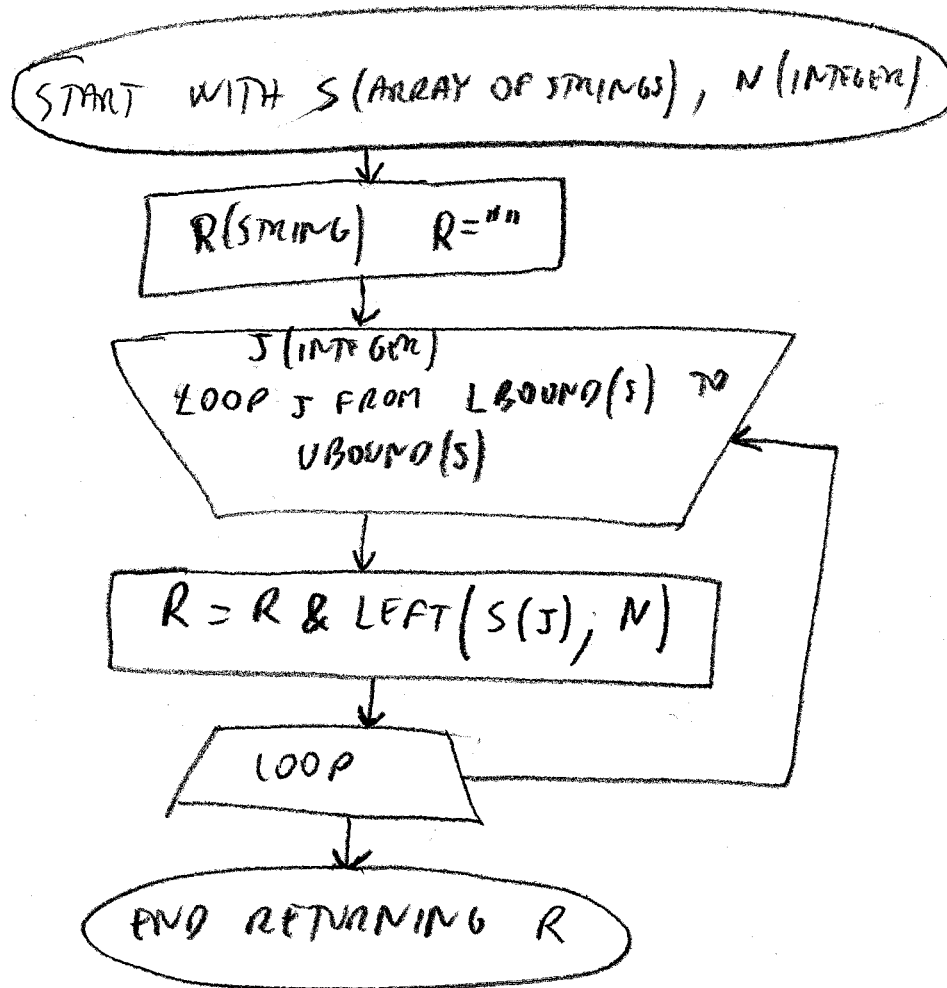 START WITH S (ARRAY OF STRINGS), N (INTEGER)
R (STRING) R = ""
J (INTEGER)
LOOP J FROM LBOUND(S) TO
UBOUND(S)
R = R & LEFT(S(J), N)
LOOP
END RETURNING R